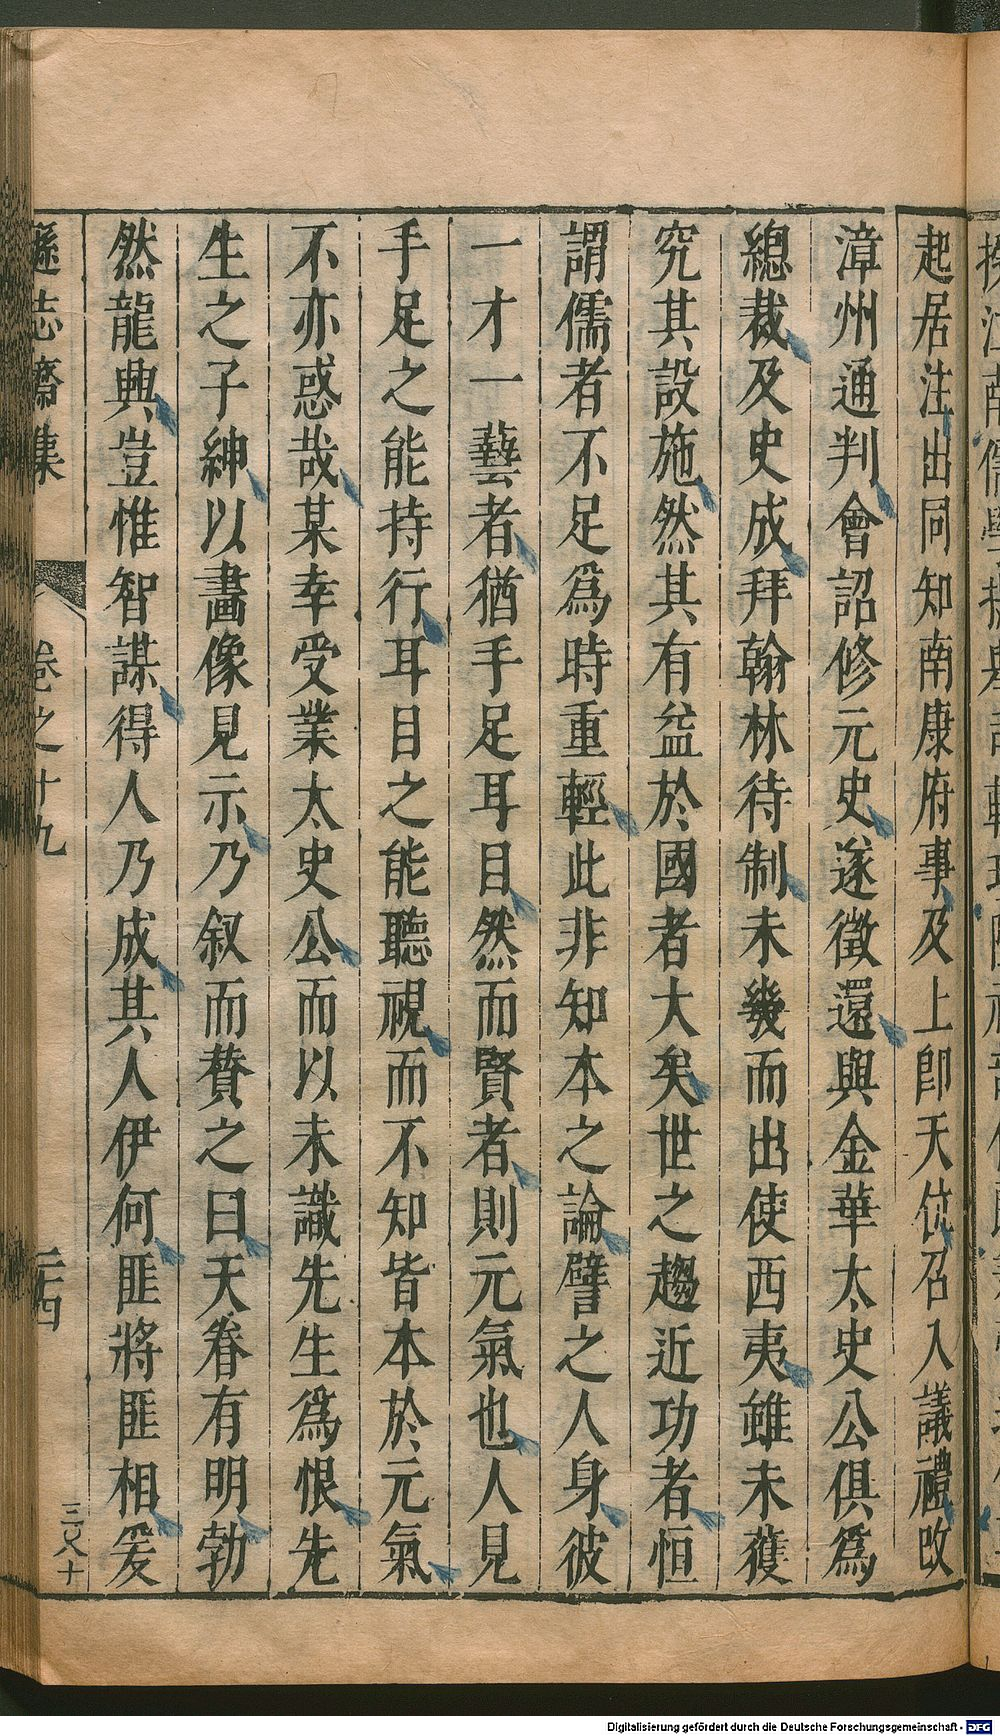 起居注出同知南康府事及上卽天位召入議禮改
漳州通判會詔修元史遂徵還與金華太史公俱爲
總裁及史成拜翰林待制未幾而出使西夷雖未獲
究其設施然其有益於國者大矣世之趨近功者恒
謂儒者不足爲時重輕此非知本之論譬之人身彼
一才一藝者猶手足耳目然而賢者則元氣也人見
手足之能持行耳目之能聽視而不知皆本於元氣
不亦惑哉某幸受業太史公而以未識先生爲恨先
生之子紳以畫像見示乃叙而贊之曰天眷有明勃
然龍興豈惟智謀得人乃成其人伊何匪將匪相爰
遜志齋集
卷之十九
二十四
Digitalisierung gefördert durch die Deutsche Forschungsgemeinschaft - DFG